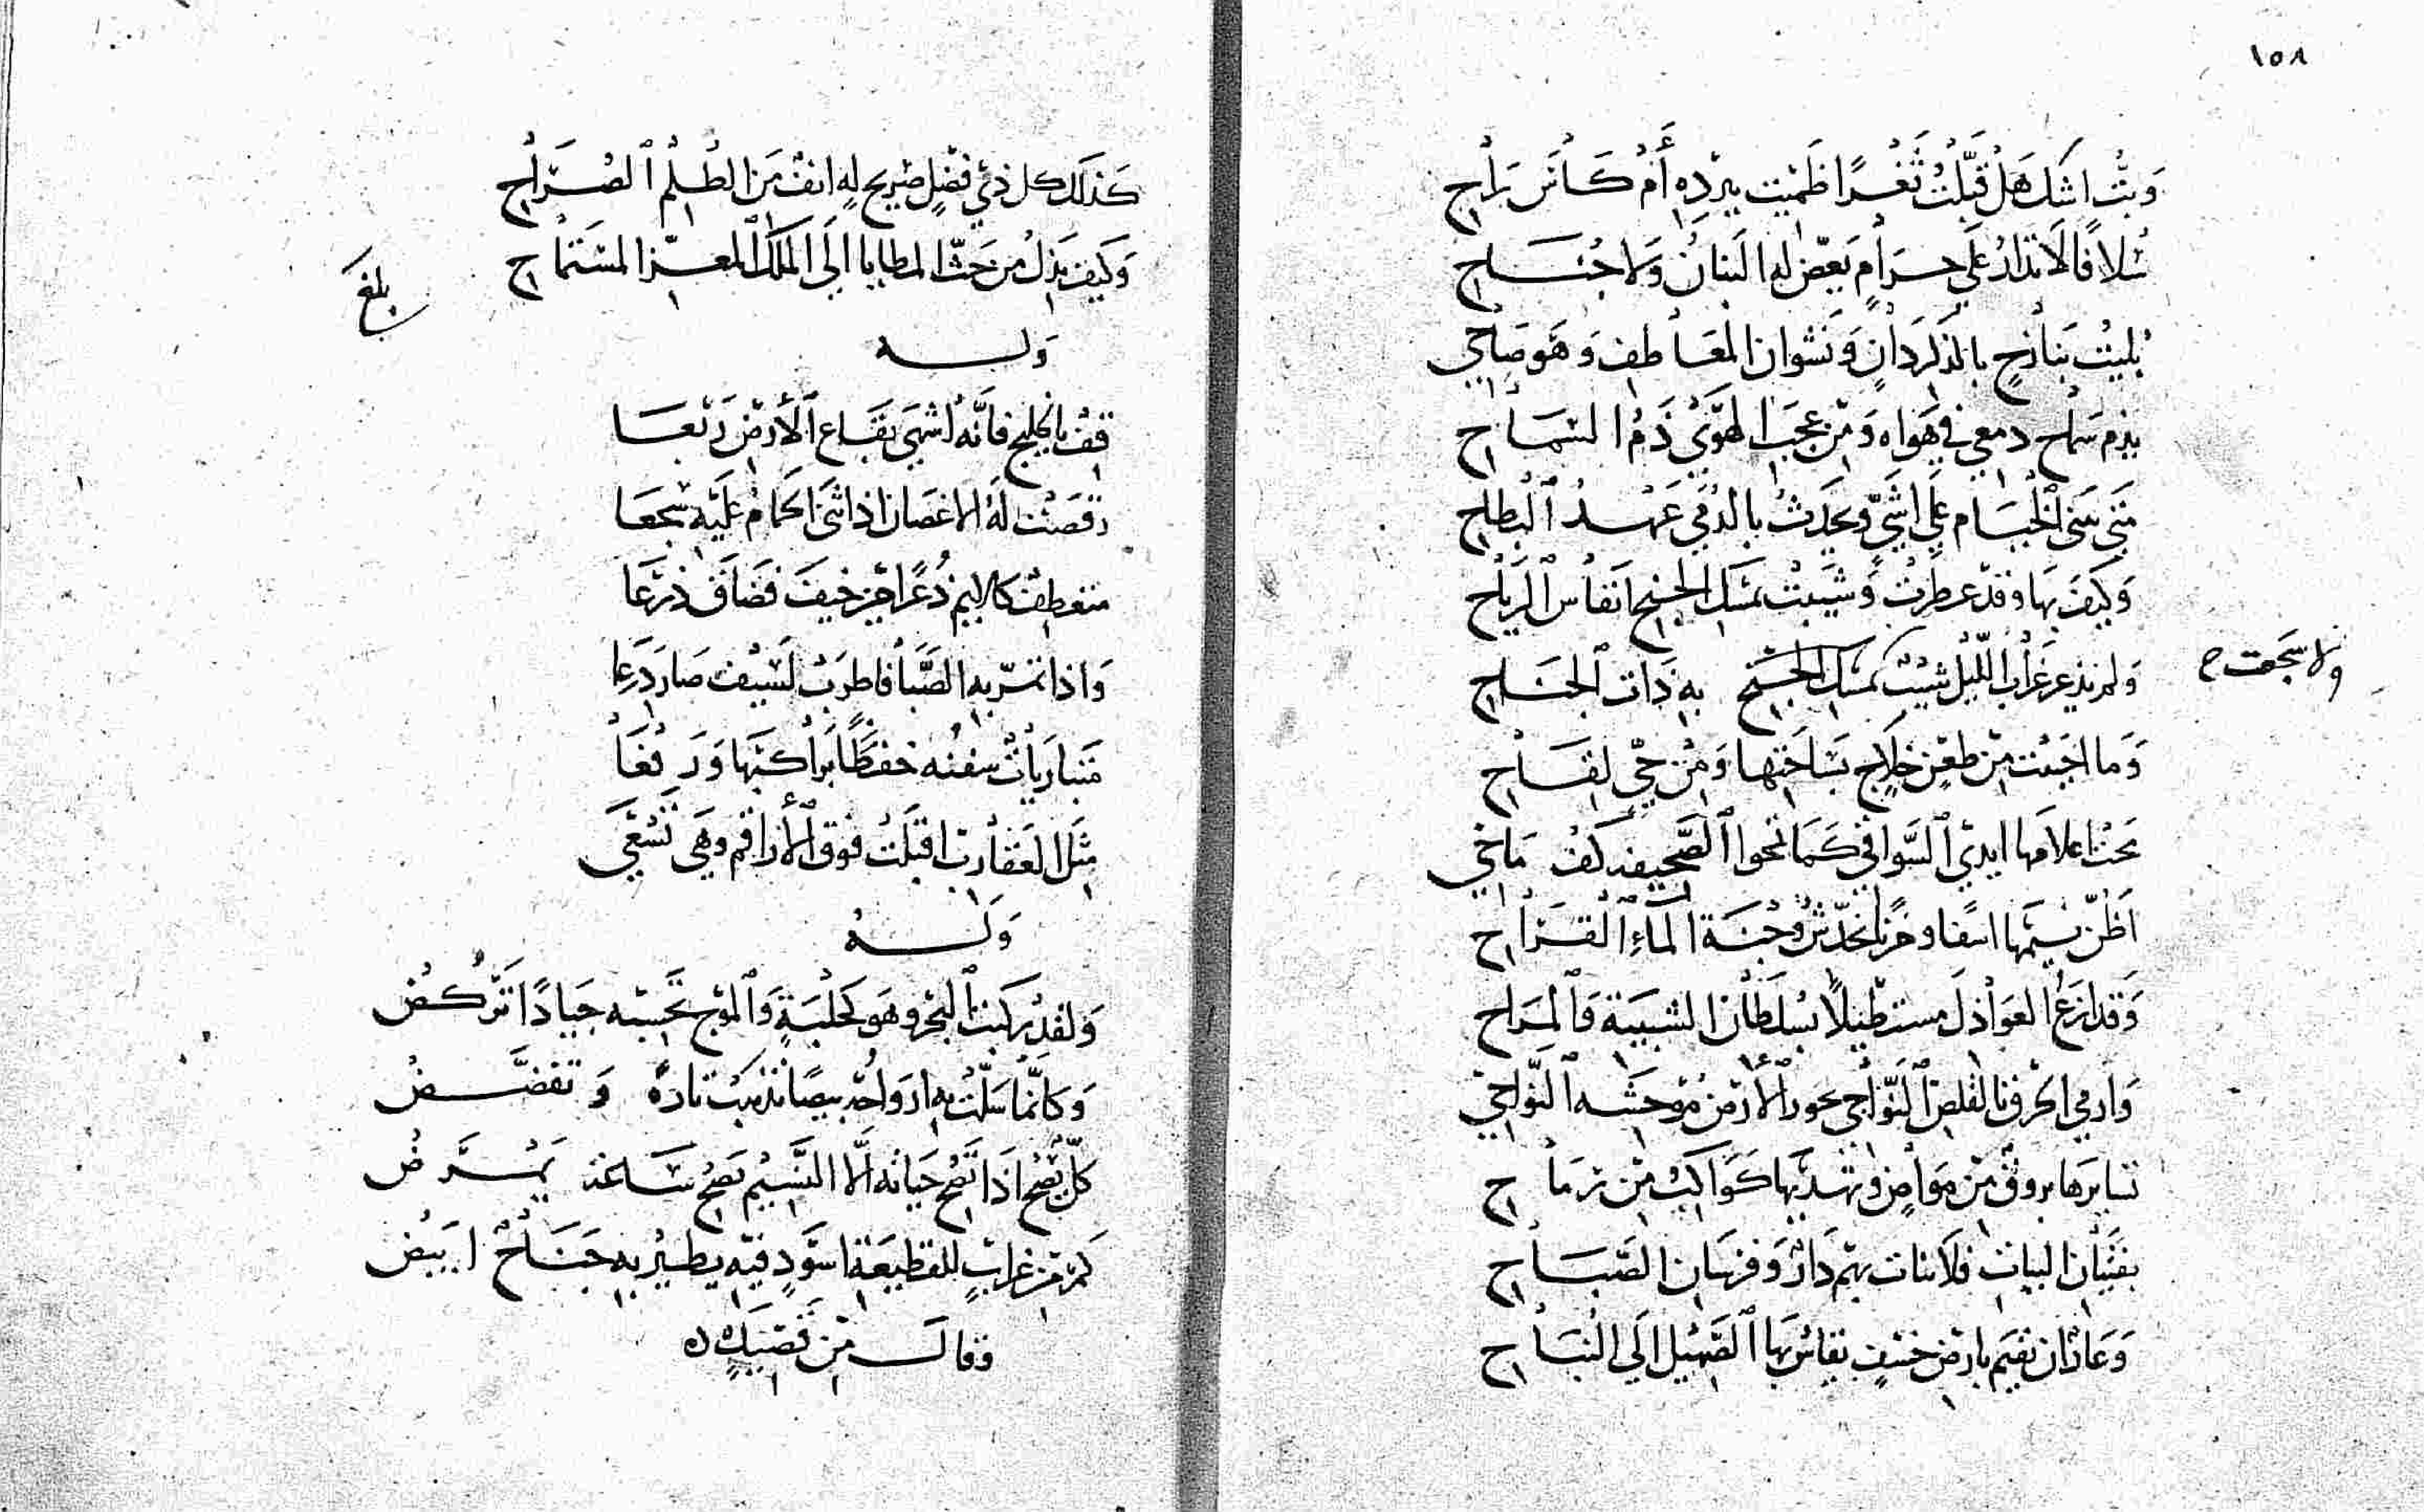 ١٥٨
وبتّ اشك هل قبّلت ثغرًا ظميت ببرده أم كأس راح
سلافًا لا تدار على حرام يعضّ له البنان ولا جناح
بليت بنازح بالذكر دانٍ ونشوان المعاطف وهو صاحي
يذم سماح دمعي في هواه ومن عجب الهوى ذم السماح
متى سنى الخيام على اشيّ ويحدث بالدمى عهد البطاح
وكيف بها وقد عطرت وشيبت بمسك الجنح انفاس الرياح
ولم يذعر غراب الليل شيبت بمسك الجنح به ذات الجناح
ولا سجعت ح
وما اجبت من طعن خلاج بساحتها ومن حي لقاح
محت اعلامها ايدي السوافي كما تمحوا الصحيفة كف ماحي
اظن نسيمها اسفا وحزنا يخدّش وجنة الماء القراح
وقد ازع العواذل مستطيلا بسلطان الشبيبة والمراح
وارمي الحرف بالقلص النواجي بحور الأرض موحشه النواحي
تسايرها بروق من مواض وتهديها كواكب من رماح
بفتيان البيات فلا بنات بهم دار وفرسان الصباح
وعار ان نقيم بارض خسف يقاس بها الصهيل الى النباح
كذلك كل ذي فضل صريح له انف من الظلم الصراح
وكيف يذل من حث المطايا الى الملك المعز المستماح
بلغ
وله
قف بالخليج فانّه اشهى بقاع الأرض ربعا
رقصت له الاغصان اذ اثنى الحمام عليه سجعا
متعطف كالايم ذعرًا حين خيف فضاق ذرعا
واذا تمرّ به الصبا فاطرب لسيف صار درعا
متباريات سفنه خفضًا براكبها ورفعا
مثل العقارب اقبلت فوق الأراقم وهي تسعى
وله
ولقد ركبت البحر وهو كحلبة والموج تحسبه جيادًا تركض
وكانما سلّت به امواجه بيضًا تذهب تارة وتفضّض
كلٌ يصح اذا تصح حياته الّا النسيم يصح ساعة يمرض
كم من غراب للقطيعة اسود فيه يطير به جناح ابيض
وقال من قصيدة